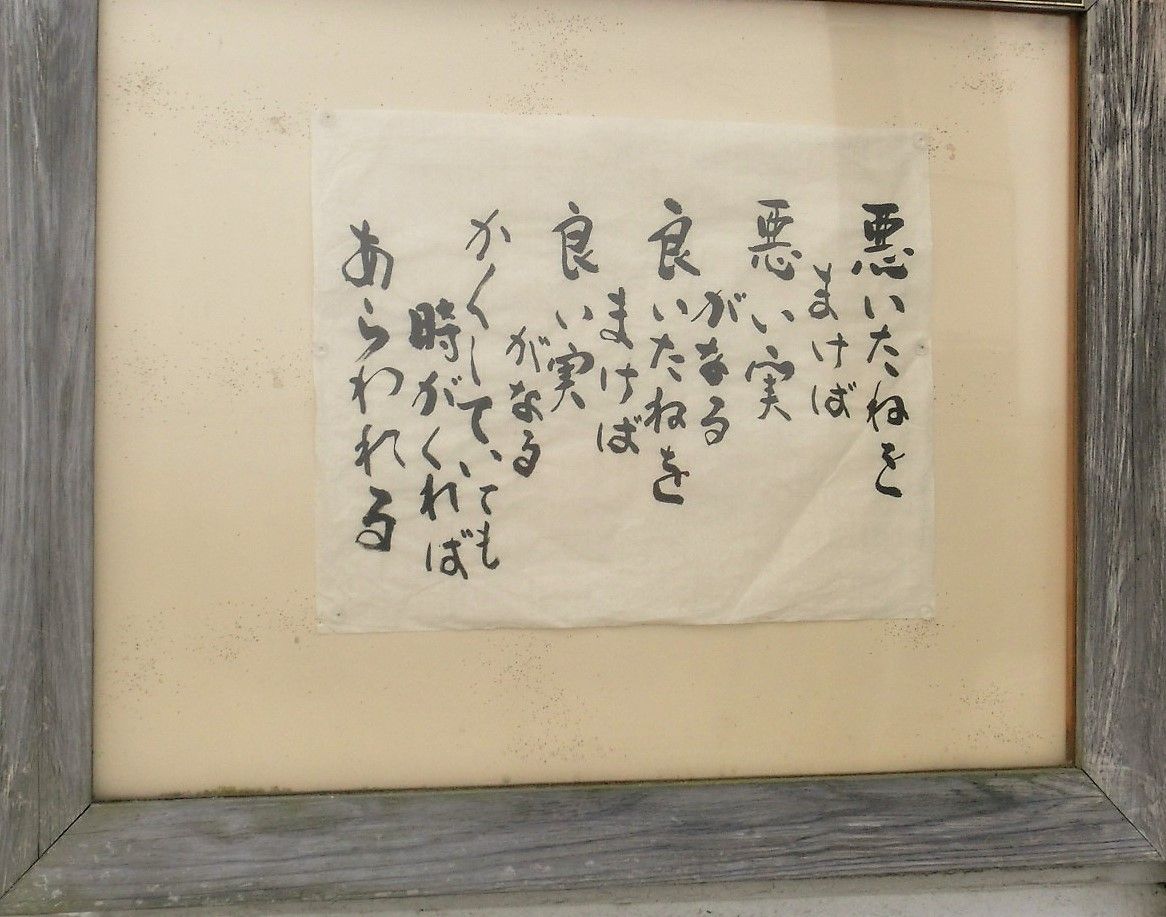 悪いたねを
まけば
悪い実
がなる
良いたねを
まけば
良い実
がなる
かくしていても
時がくれば
あらわれる